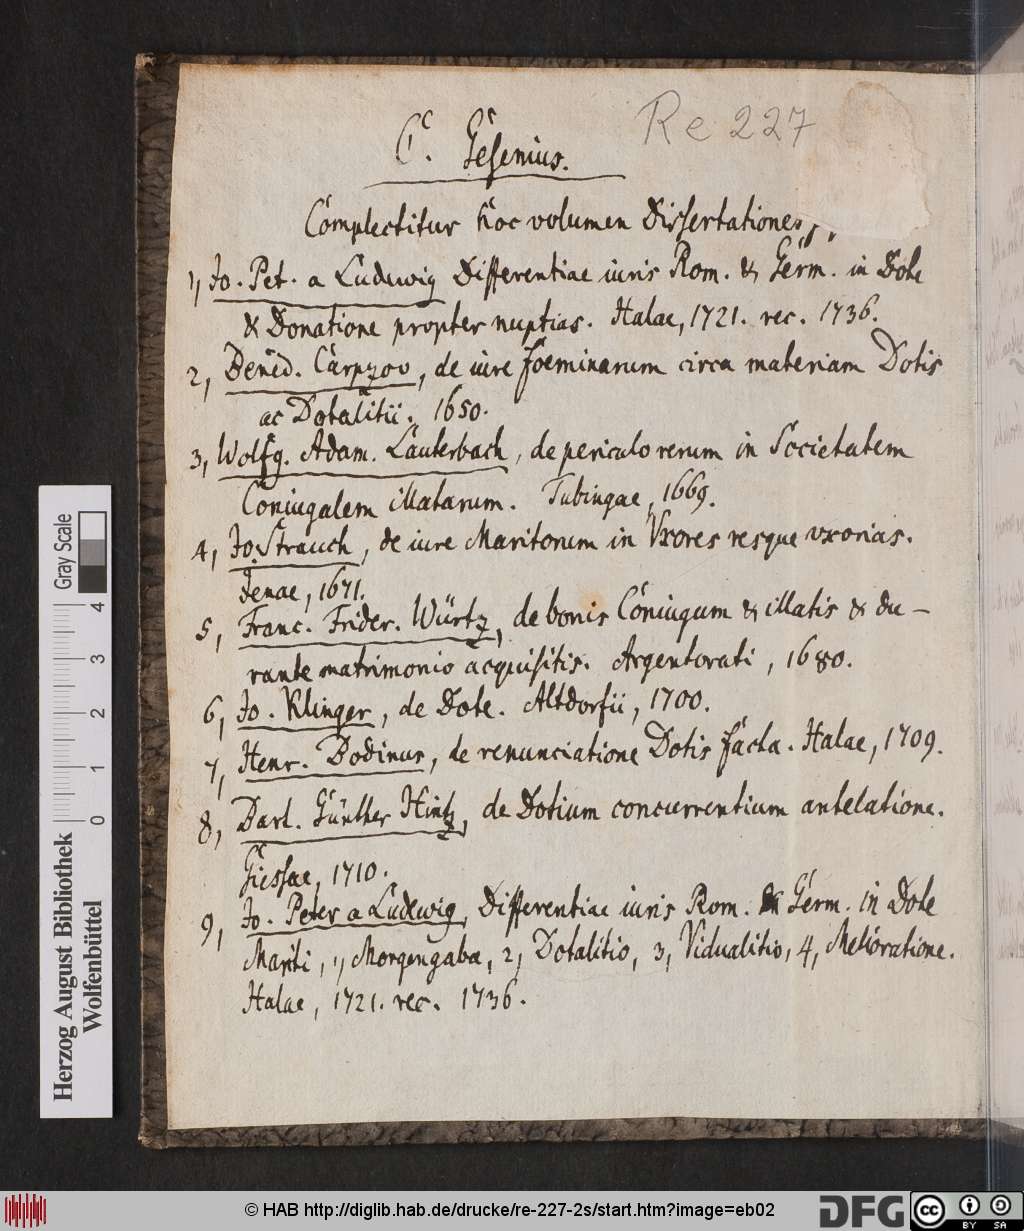 Re 227
C. Gesenius.
Complectitur hoc volumen Dissertationes,
1, Jo. Pet. a Ludewig Differentiae iuris Rom. & Germ. in Dote
& Donatione propter nuptias. Halae, 1721. rec. 1736.
2, Bened. Carpzov, de iure foeminarum circa materiam Dotis
ac Dotalitii. 1650.
3, Wolfg. Adam. Lauterbach, de periculo rerum in Societatem
Coniugalem illatarum. Tubingae, 1669.
4, Jo. Strauch, de iure Maritorum in Uxores resque uxorias.
Jenae, 1671.
5, Franc. Frider. Würtz, de bonis Coniugum & illatis & du-
rante matrimonio acquisitis. Argentorati, 1680.
6, Jo. Klinger, de Dote. Altdorfii, 1700.
7, Henr. Bodinus, de renunciatione Dotis facta. Halae, 1709.
8, Bart. Günther Hintz, de Dotium concurrentium antelatione.
Giessae, 1710.
9, Jo. Peter a Ludewig, Differentiae iuris Rom. & Germ. in Dote
Mariti, 1, Morgengaba, 2, Dotalitio, 3, Vidualitio, 4, Melioratione.
Halae, 1721. rec. 1736.
Gray Scale
0 1 2 3 4
Herzog August Bibliothek
Wolfenbüttel
© HAB http://diglib.hab.de/drucke/re-227-2s/start.htm?image=eb02
DFG
cc
BY SA